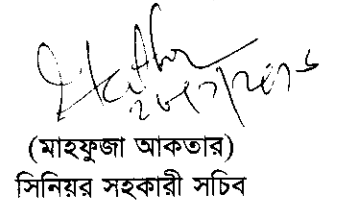 (মাহফুজা আকতার)
সিনিয়র সহকারী সচিব